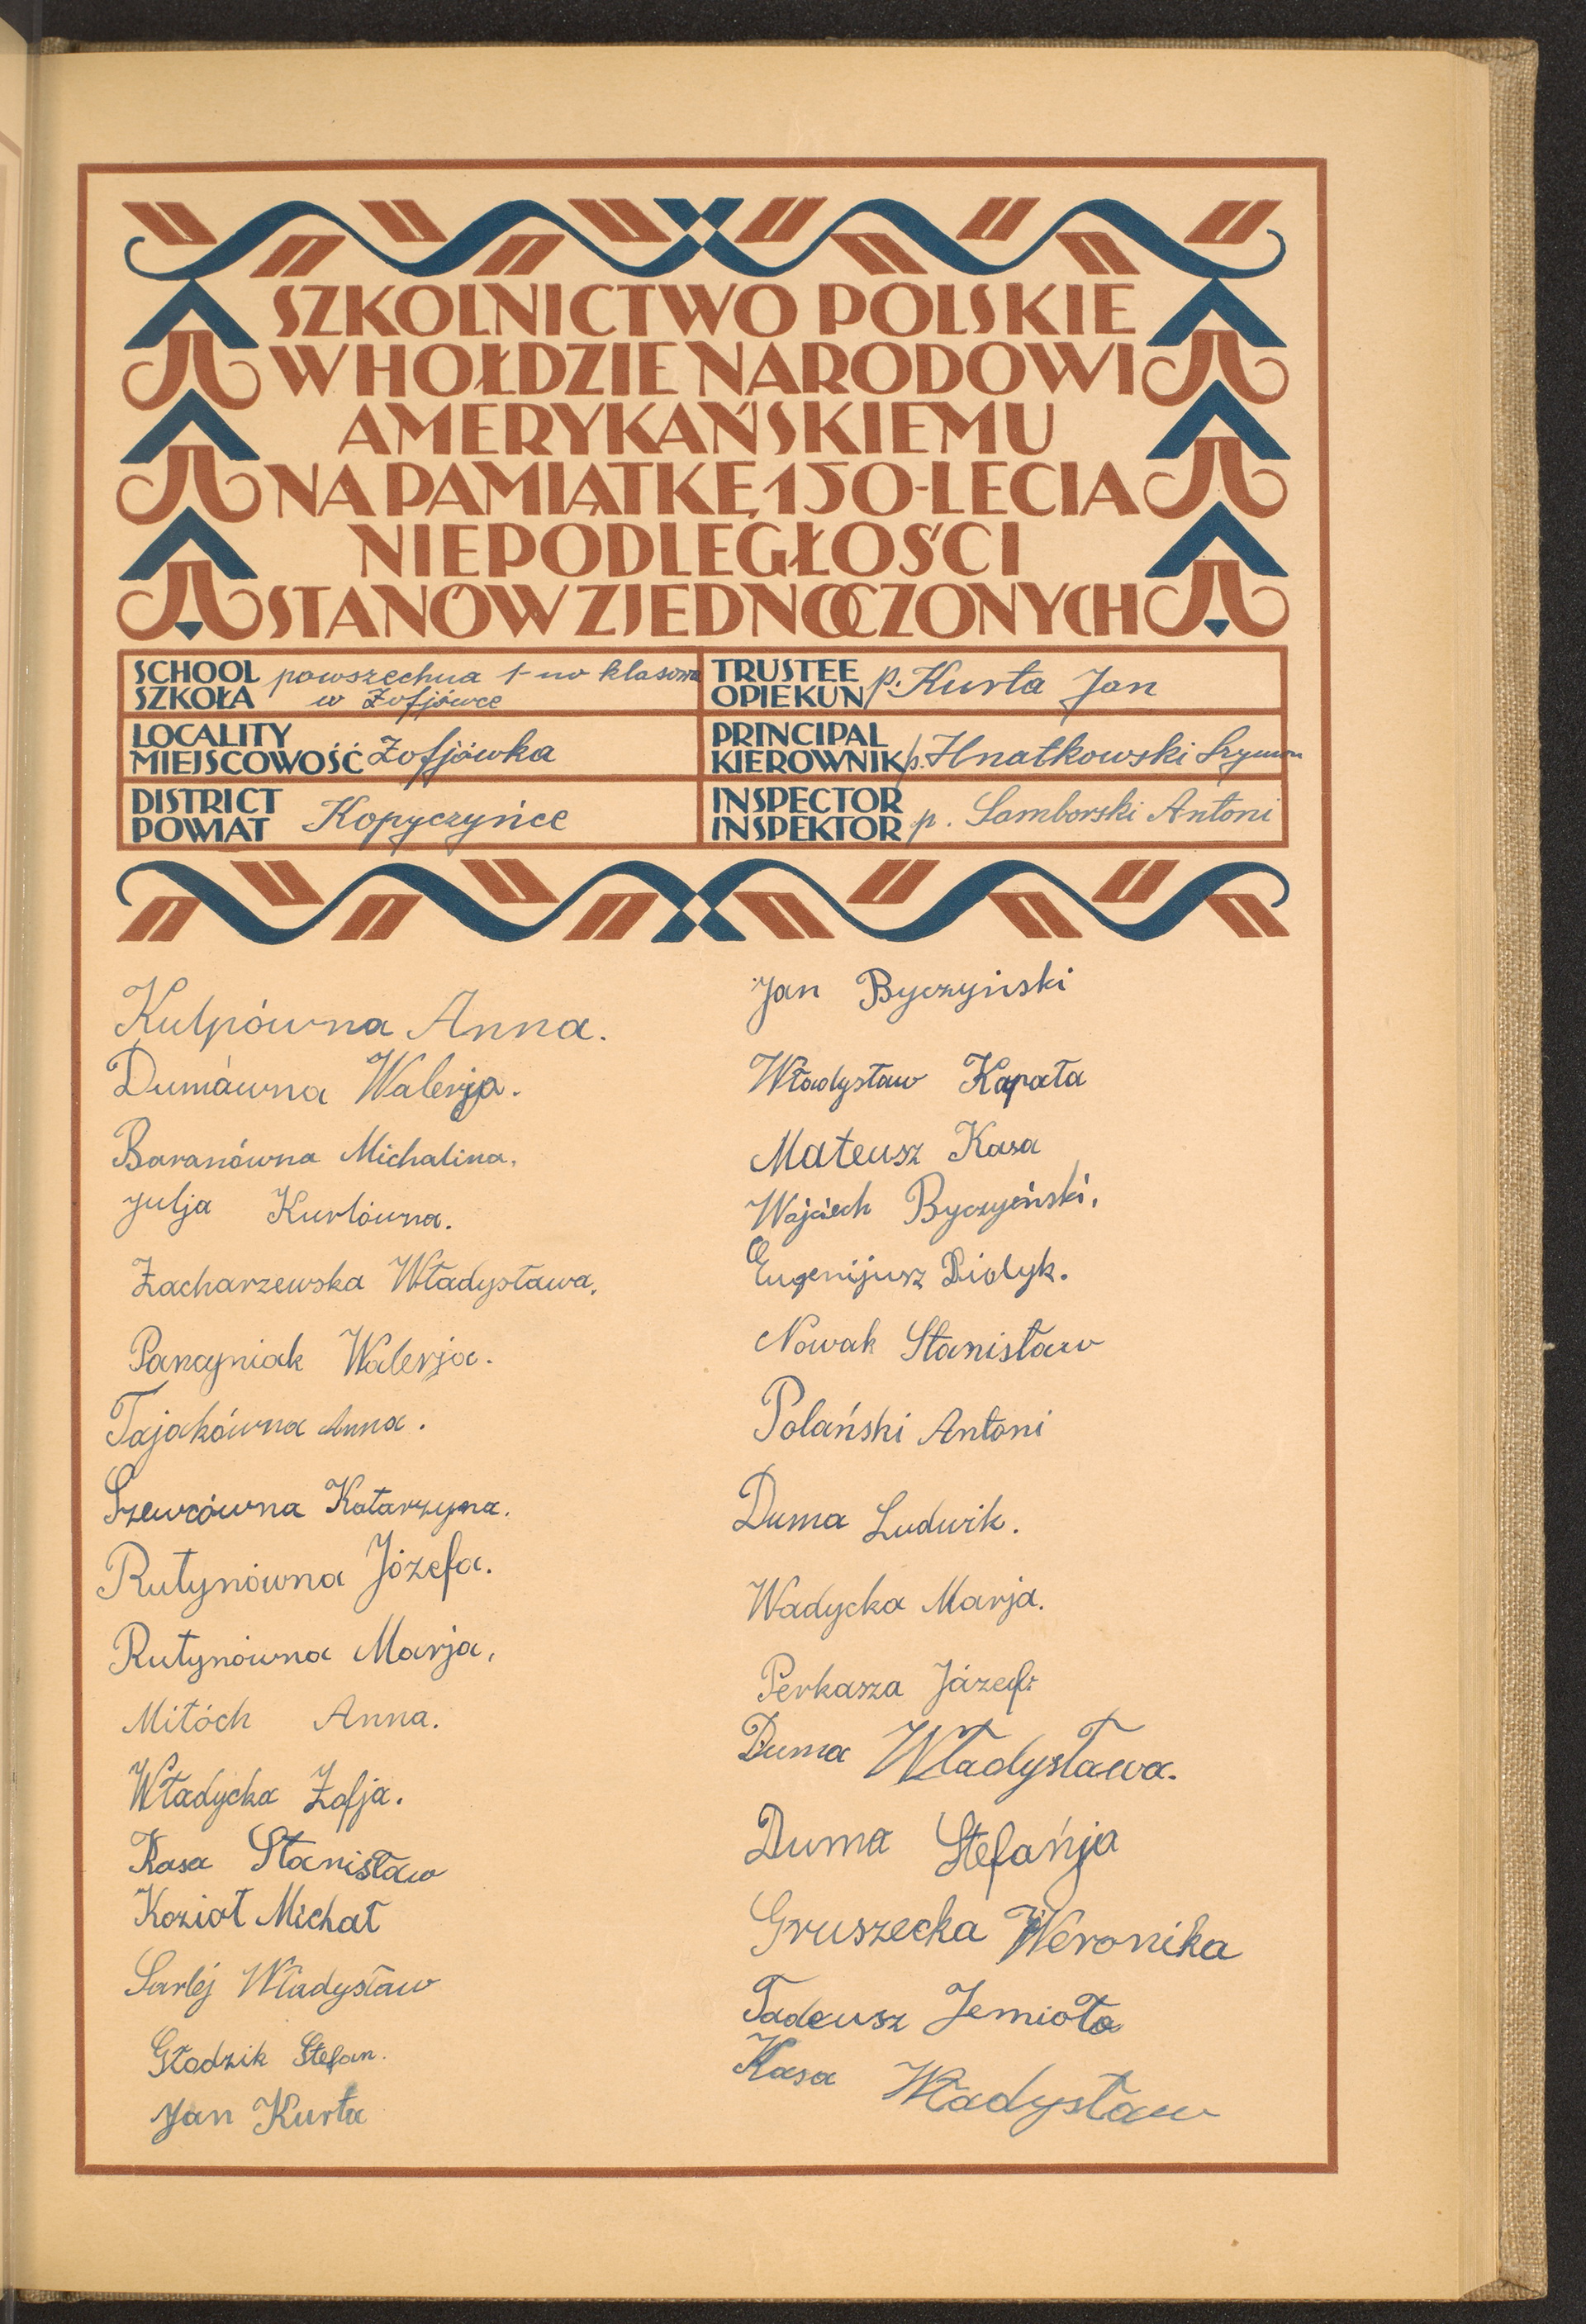 SZKOLNICTWO POLSKIE
W HOŁDZIE NARODOWI
AMERYKAŃSKIEMU
NA PAMIĄTKĘ 150-LECIA
NIEPODLEGŁOŚCI
STANÓW ZJEDNOCZONYCH
SCHOOL
SZKOŁA
powszechna 1-no klasowa
w Zofjówce
TRUSTEE
OPIEKUN
p. Kurta Jan
LOCALITY
MIEJSCOWOŚĆ
Zofjówka
PRINCIPAL
KIEROWNIK
p. Hnatkowski Szymon
DISTRICT
POWIAT
Kopyczyńce
INSPECTOR
INSPEKTOR
p. Samborski Antoni
Kulpówna Anna.
Dumówna Walerja.
Baranówna Michalina.
Julja Kurtówna.
Zacharzewska Władysława.
Panayniak Walerja.
Tajakówna Anna.
Szewcówna Katarzyna.
Rutynówna Józefa.
Rutynówna Marja.
Mitóch Anna.
Władycka Zofja.
Kasa Stanisław
Kozioł Michał
Sarlej Władysław
Gładzik Stefan.
Jan Kurta
Jan Byczyński
Władysław Kapała
Mateusz Kasa
Wojciech Byczyński.
Eugenijusz Didyk.
Nowak Stanisław
Polański Antoni
Duma Ludwik.
Wadycka Marja.
Perkasza Józef.
Duma Władysława.
Duma Stefańja
Gruszecka Weronika
Tadeusz Jemioła
Kasa Władysław